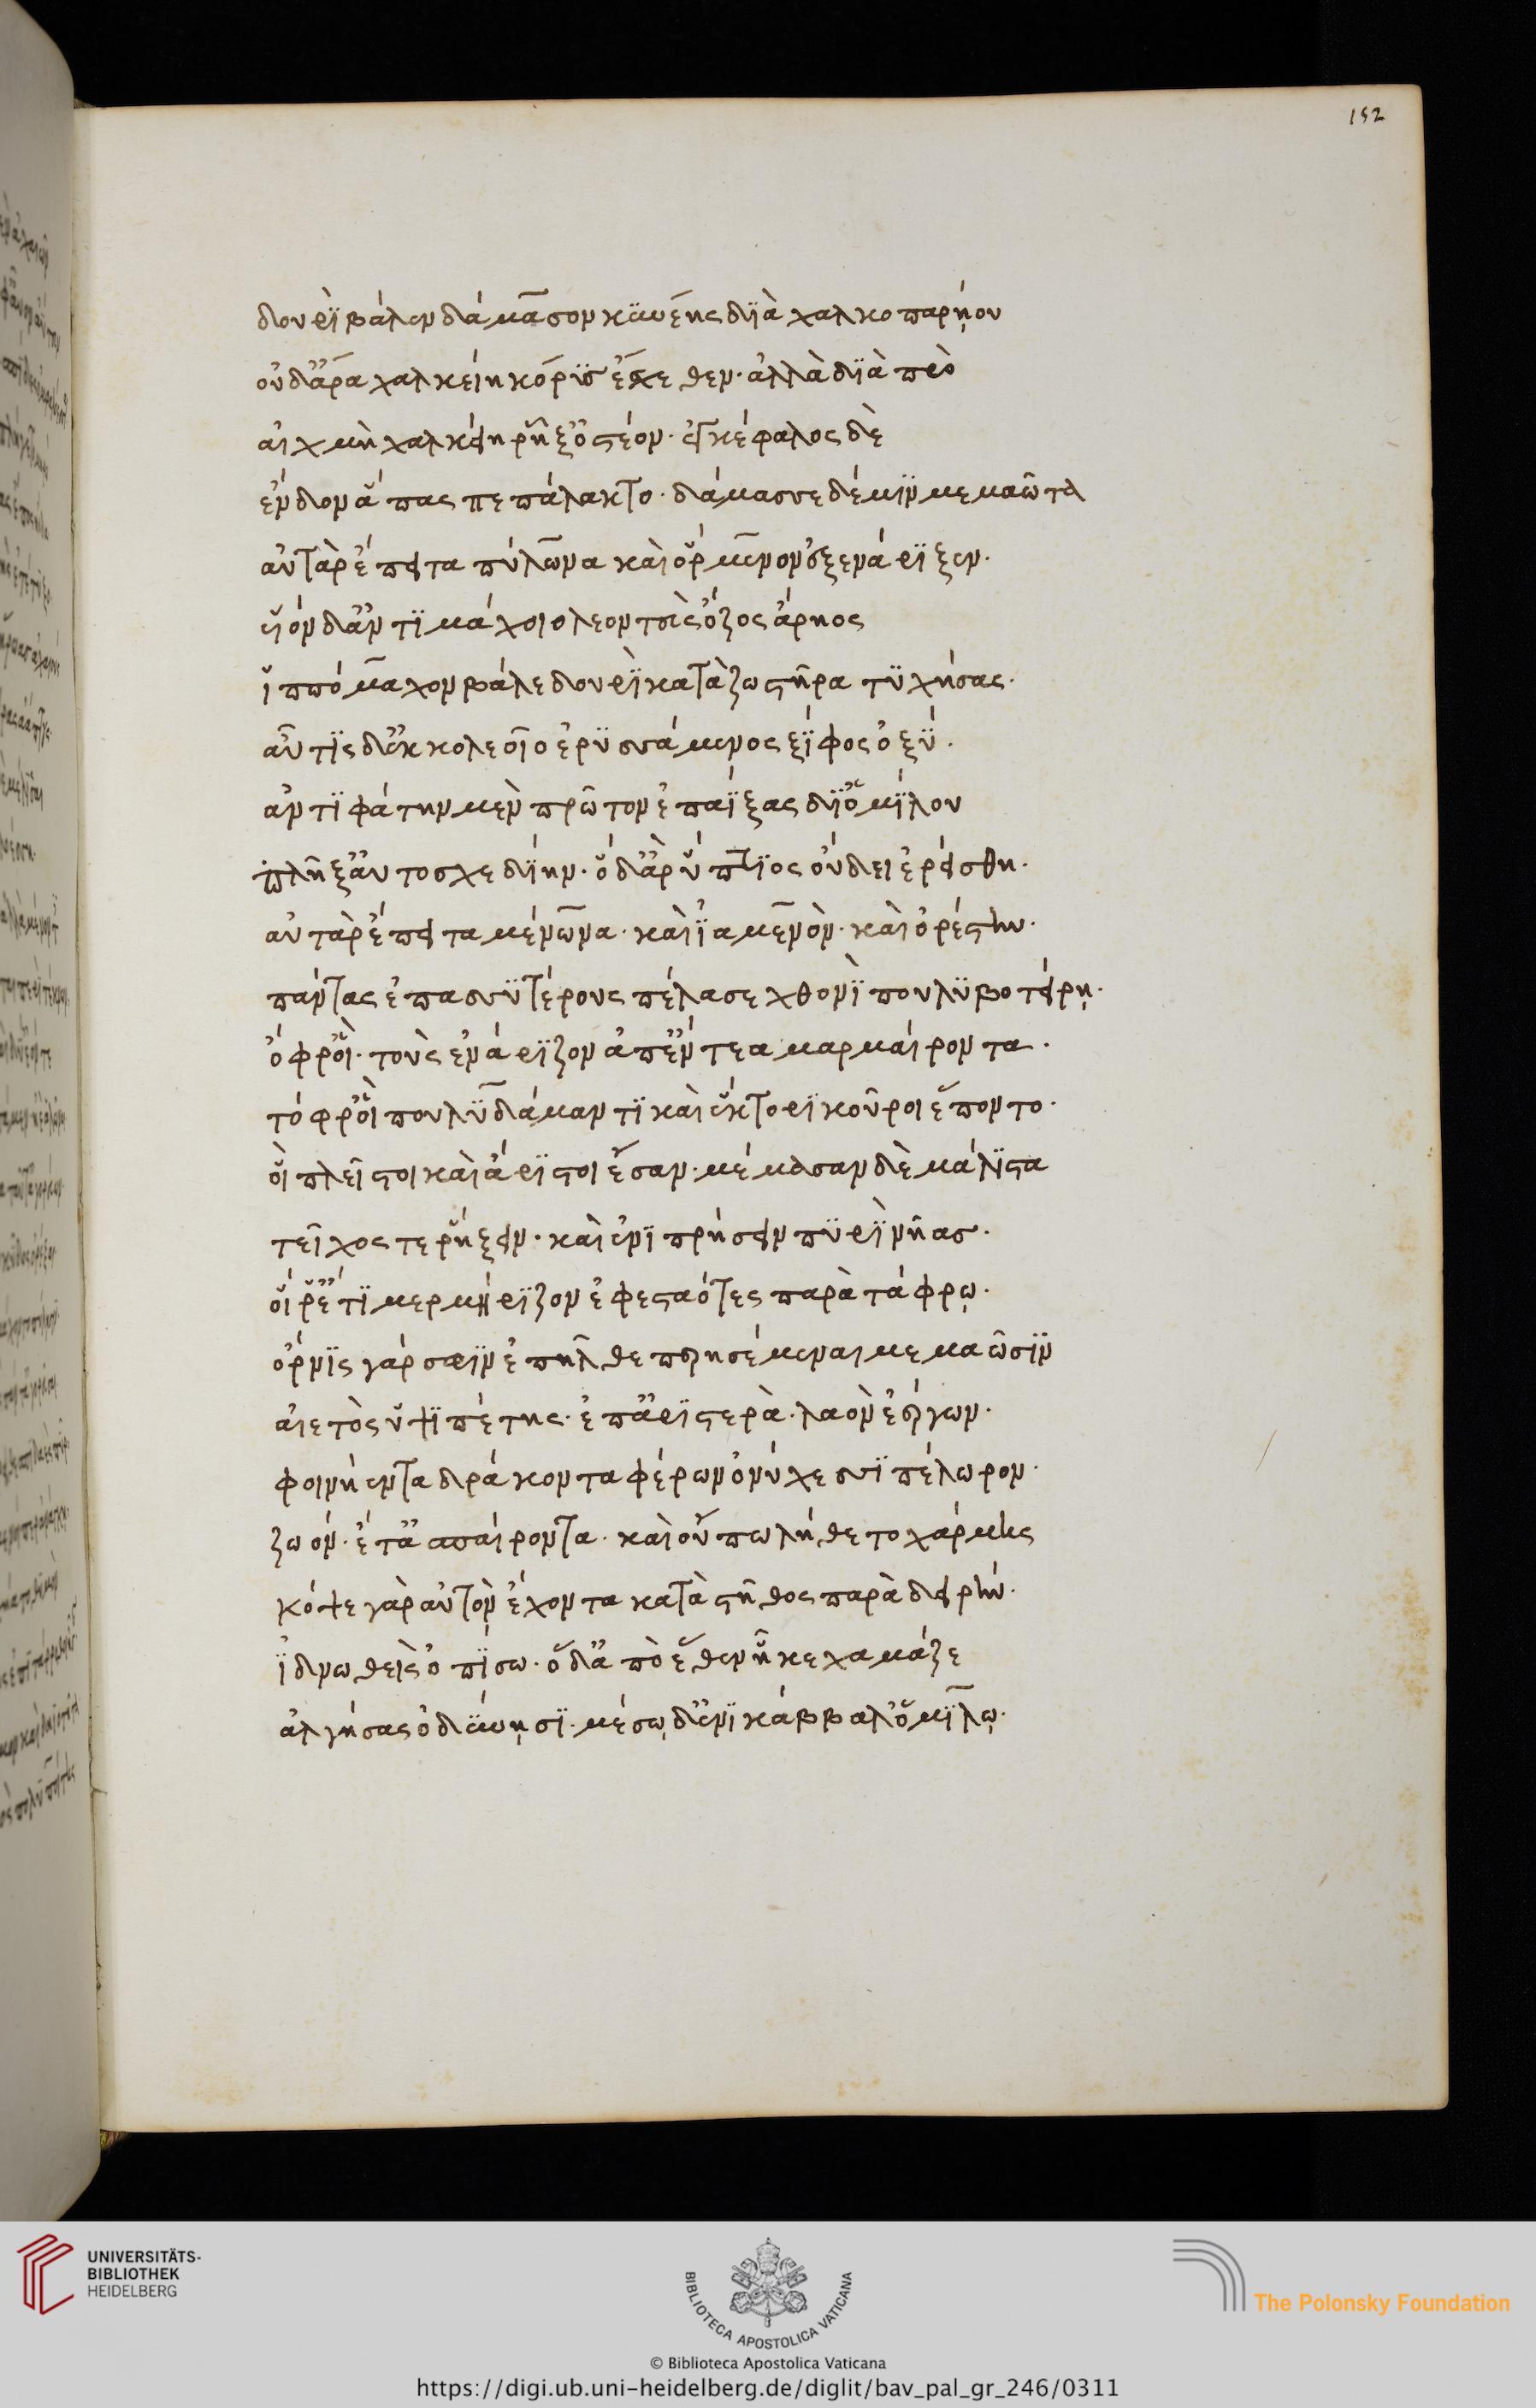 152
δουρὶ βάλεν δάμασον κυνέης διὰ χαλκοπαρήου
οὐδ' ἄρα χαλκείη κόρυς ἔσχεθεν· ἀλλὰ διὰ πρὸ
αἰχμὴ χαλκείη ῥῆξ' ὀστέον· ἐγκέφαλος δὲ
ἔνδον ἅπας πεπάλακτο· δάμασσε δέ μιν μεμαῶτα
αὐτὰρ ἔπειτα πύλωνα καὶ ὄρμενον ἐξενάριξεν·
υἱὸν δ' ἀντιμάχοιο λεοντεὺς ὄζος ἄρηος
ἱππόμαχον βάλε δουρὶ κατὰ ζωστῆρα τυχήσας·
αὖτις δ' ἐκ κολεοῖο ἐρυσσάμενος ξίφος ὀξύ·
ἀντιφάτην μὲν πρῶτον ἐπαΐξας δι' ὁμίλου
πλῆξ' αὐτοσχεδίην· ὁ δ' ἄρ' ὕπτιος οὔδει ἐρείσθη·
αὐτὰρ ἔπειτα μένωνα· καὶ ἰαμενὸν· καὶ ὀρέστην·
πάντας ἐπασσυτέρους πέλασε χθονὶ πουλυβοτείρῃ·
ὄφρ' οἱ· τοὺς ἐνάριζον ἀπ' ἔντεα μαρμαίροντα·
τόφρ' οἱ πουλυδάμαντι καὶ ἕκτορι κοῦροι ἕποντο·
οἳ πλεῖστοι καὶ ἄριστοι ἔσαν· μέμασαν δὲ μάλιστα
τεῖχός τε ῥήξειν· καὶ ἐνιπρήσειν πυρὶ νῆας·
οἵ ῥ' ἔτι μερμήριζον ἐφεσταότες παρὰ τάφρῳ·
ὄρνις γάρ σφιν ἐπῆλθε πρησέμεναι μεμαῶσιν
αἰετὸς ὑψιπέτης· ἐπ' ἀριστερὰ· λαὸν ἐέργων·
φοινήεντα δράκοντα φέρων ὀνύχεσσι πέλωρον·
ζωόν· ἔτ' ἀσπαίροντα· καὶ οὔπω λήθετο χάρμης
κόψε γὰρ αὐτὸν ἔχοντα κατὰ στῆθος παρὰ δειρήν·
ἰδνωθεὶς ὀπίσω· ὁ δ' ἀπὸ ἕθεν ἧκε χαμάζε
ἀλγήσας ὀδύνῃσι· μέσῳ δ' ἐνὶ κάββαλ' ὁμίλῳ·
UNIVERSITÄTS-
BIBLIOTHEK
HEIDELBERG
BIBLIOTECA APOSTOLICA VATICANA
The Polonsky Foundation
© Biblioteca Apostolica Vaticana
https://digi.ub.uni-heidelberg.de/diglit/bav_pal_gr_246/0311